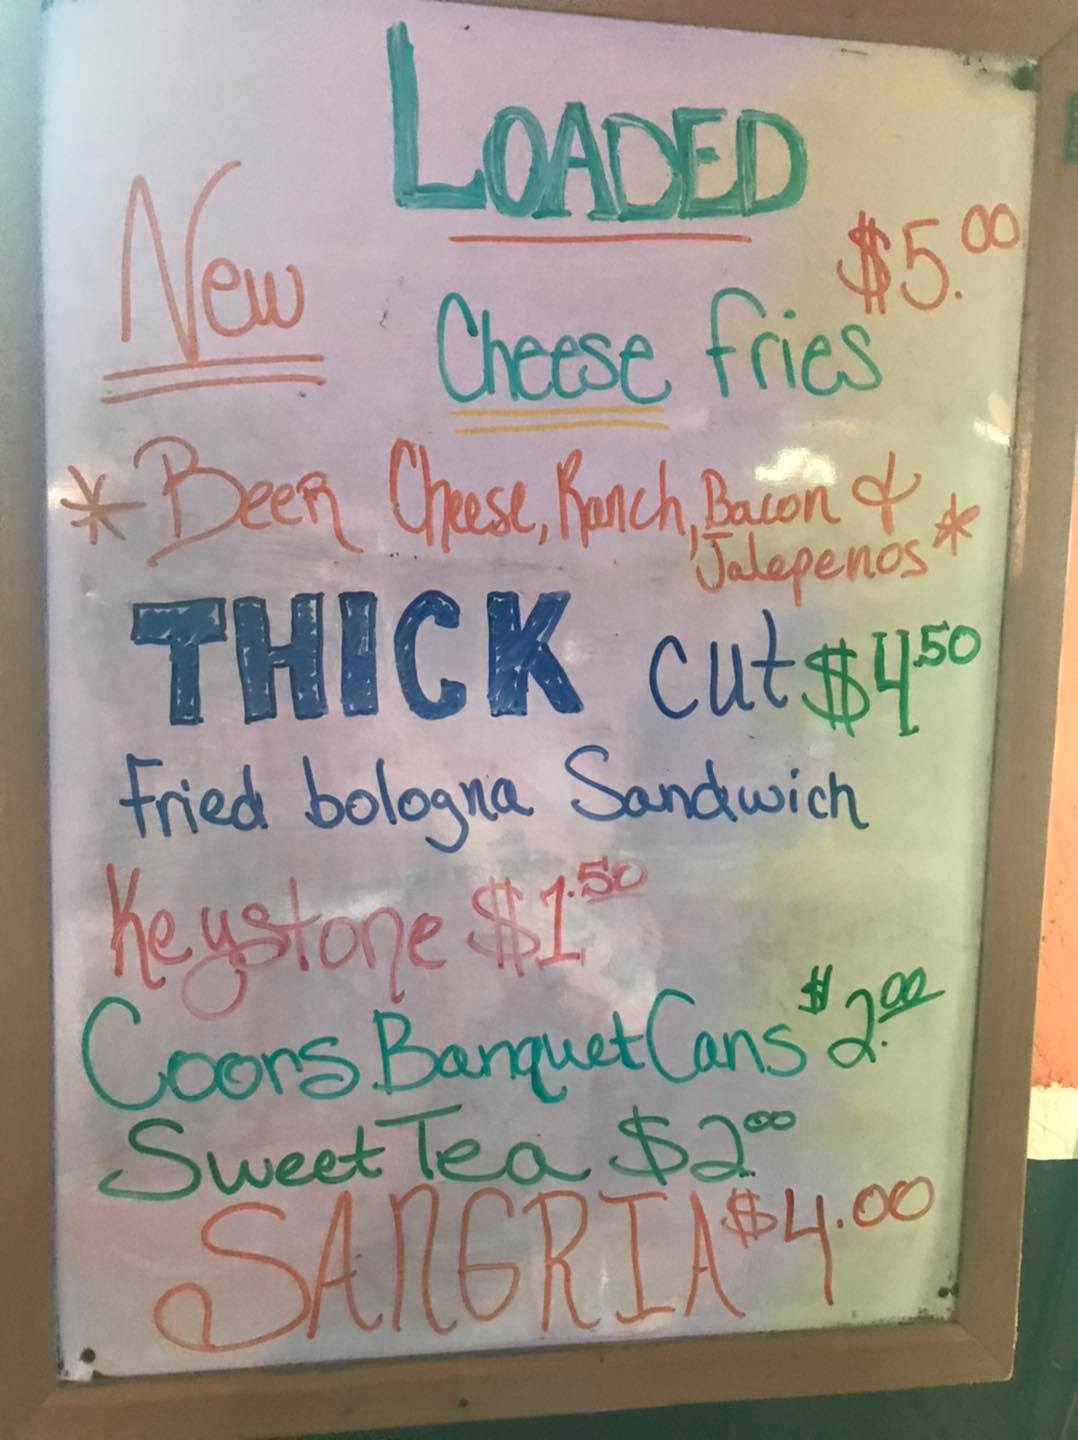 LOADED
New
$5.00
Cheese fries
* Beer Cheese, Ranch, Bacon &
Jalepenos *
THICK cut $4.50
Fried bologna Sandwich
Keystone $1.50
Coors Banquet Cans $2.00
Sweet Tea $2.00
SANGRIA $4.00